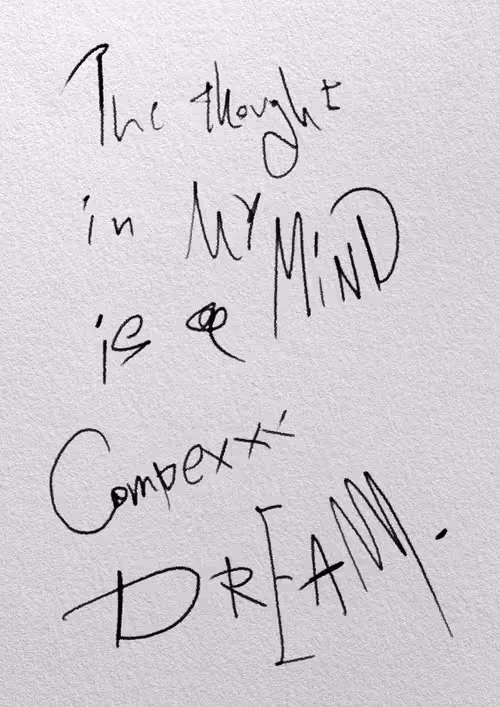 The thought
in MY MiND
is a
Compexxx
DREAM.